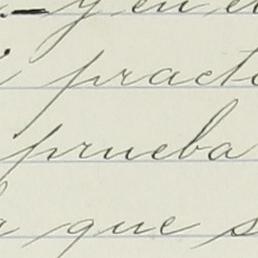 y en el
practi
prueba
que s